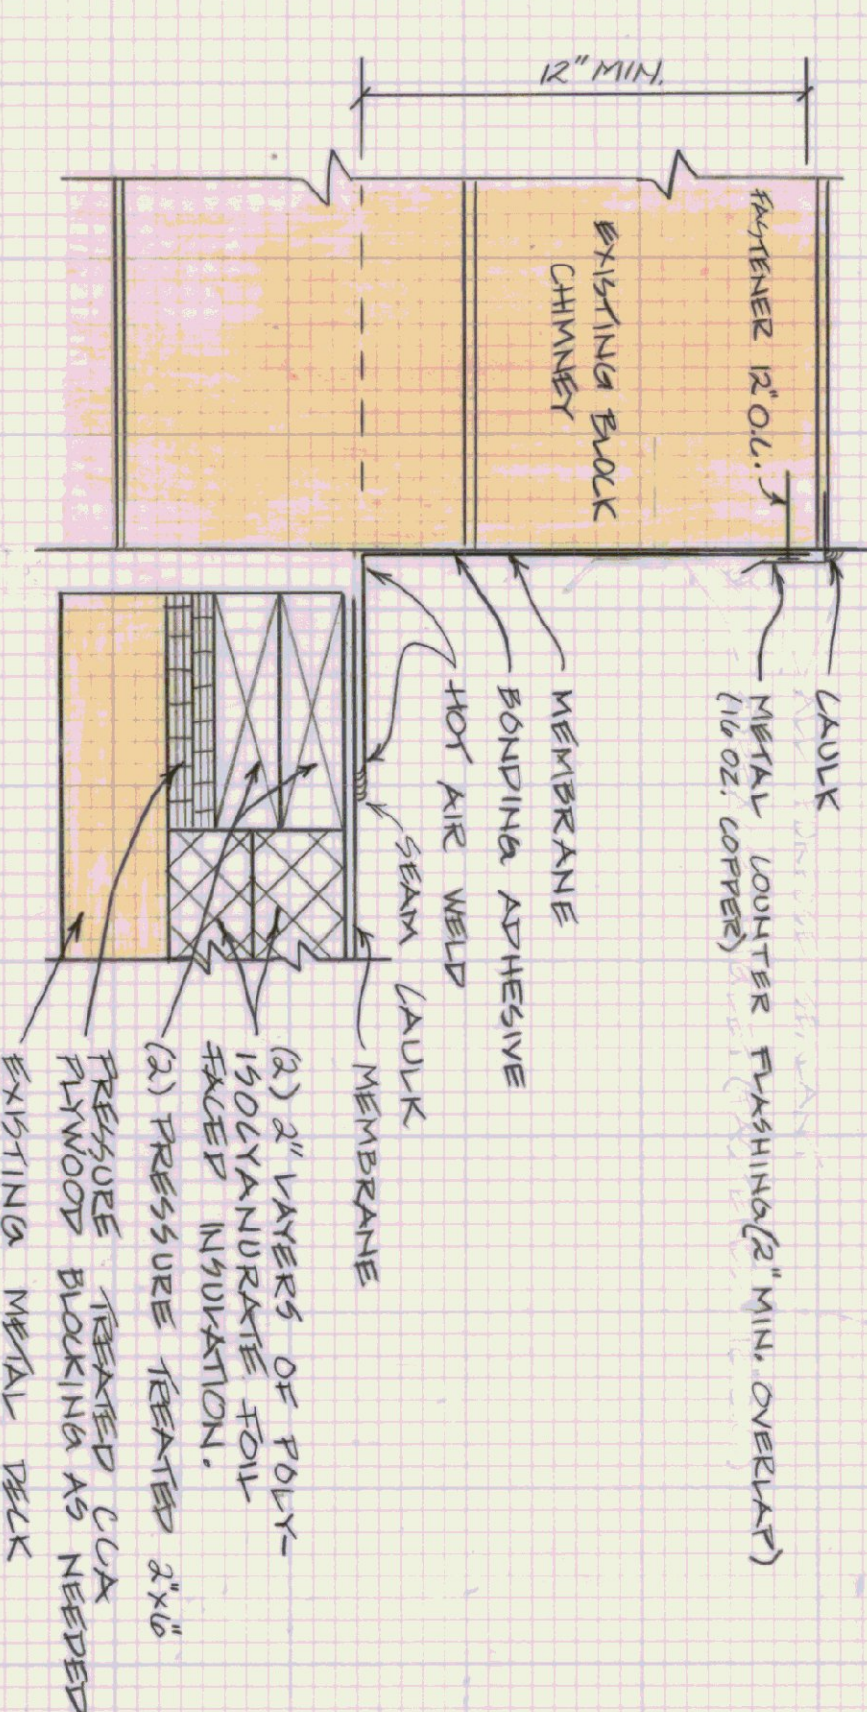 12" MIN.
FASTENER 12" O.C.
EXISTING BLOCK
CHIMNEY
CAULK
METAL COUNTER FLASHING (2" MIN. OVERLAP)
(16 OZ. COPPER)
MEMBRANE
BONDING ADHESIVE
HOT AIR WELD
SEAM CAULK
MEMBRANE
(2) 2" LAYERS OF POLY-
ISOCYANURATE FOIL
FACED INSULATION.
(2) PRESSURE TREATED 2"x6"
PRESSURE TREATED CCA
PLYWOOD BLOCKING AS NEEDED
EXISTING METAL DECK